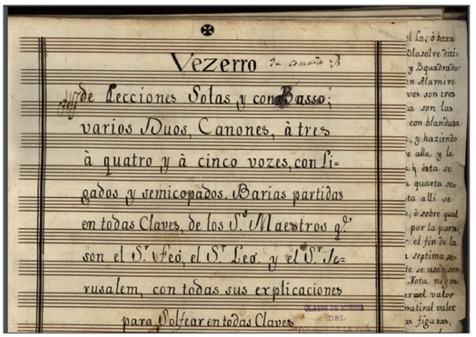 Vezerro
de Lecciones Solas, y con Basso;
varios Duos, Canones, à tres
à quatro y à cinco vozes, con li-
gados y semicopados. Barias partidas
en todas Claves, de los Ss. Maestros q.
son el Sr. Feò, el Sr. Leo, y el Sr. Je-
rusalem, con todas sus explicaciones
para Solfear en todas Claves
DEL
el la, ò baxa
y Bquadrado
Alamire
ves son tres
son las
con blandura
y haziendo
alla, y le
esta se
quarta se
ta alli se
ò sobre qual
por la parte
el fin de la
septima se
te se usò son
Nota negra
valor
natural valor
figuras,